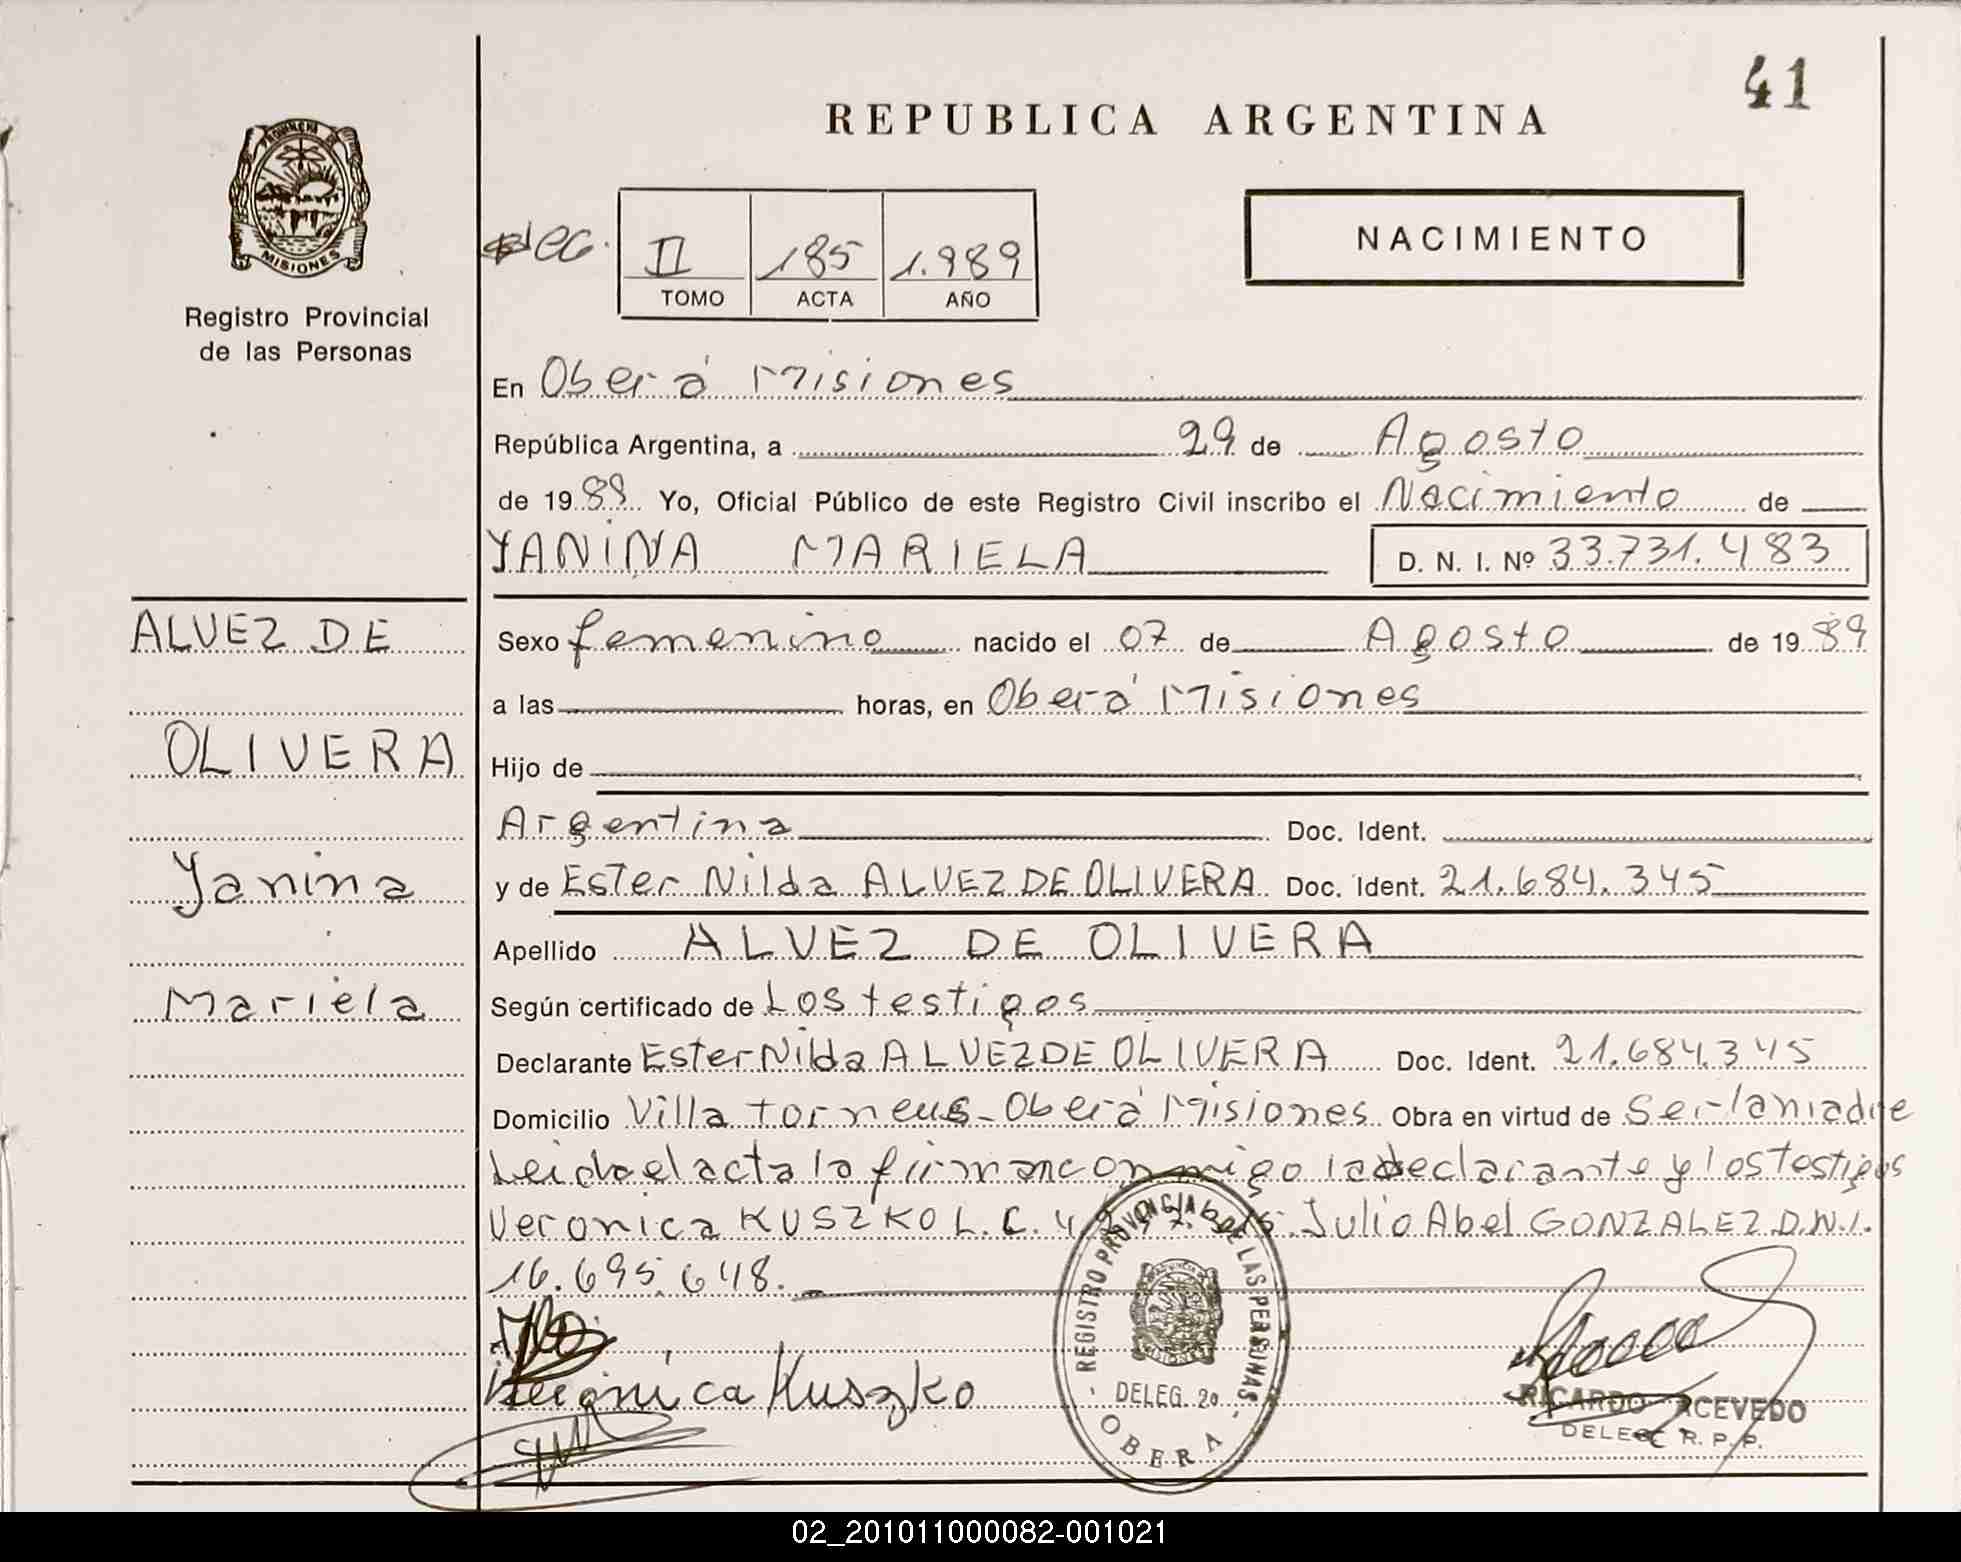 41
REPUBLICA ARGENTINA
PROVINCIA DE
MISIONES
Registro Provincial
de las Personas
II 185 1.989
TOMO ACTA AÑO
NACIMIENTO
En Oberá Misiones
República Argentina, a 29 de Agosto
de 1989 Yo, Oficial Público de este Registro Civil inscribo el Nacimiento de
YANINA MARIELA D. N. I. Nº 33.731.483
ALVEZ DE
OLIVERA
Yanina
Mariela
Sexo femenino nacido el 07 de Agosto de 1989
a las horas, en Oberá Misiones
Hijo de
Argentina Doc. Ident.
y de Ester Nilda ALVEZ DE OLIVERA Doc. Ident. 21.684.345
Apellido ALVEZ DE OLIVERA
Según certificado de Los testigos
Declarante Ester Nilda ALVEZ DE OLIVERA Doc. Ident. 21.684.345
Domicilio Villa torneus - Oberá Misiones Obra en virtud de Ser la madre
Leida el acta la firman conmigo la declarante y los testigos
Veronica KUSZKO L.C. Julio Abel GONZALEZ D.N.I.
16.695.648.
Veronica Kuszko
REGISTRO PROVINCIAL DE LAS PERSONAS
DELEG. 20
OBERA
RICARDO ACEVEDO
DELEG. R. P. P.
02_201011000082-001021